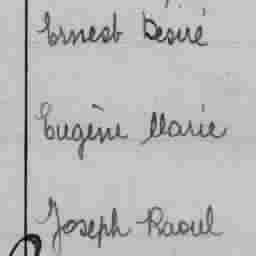 Ernest Désiré
Eugène Marie
Joseph Raoul